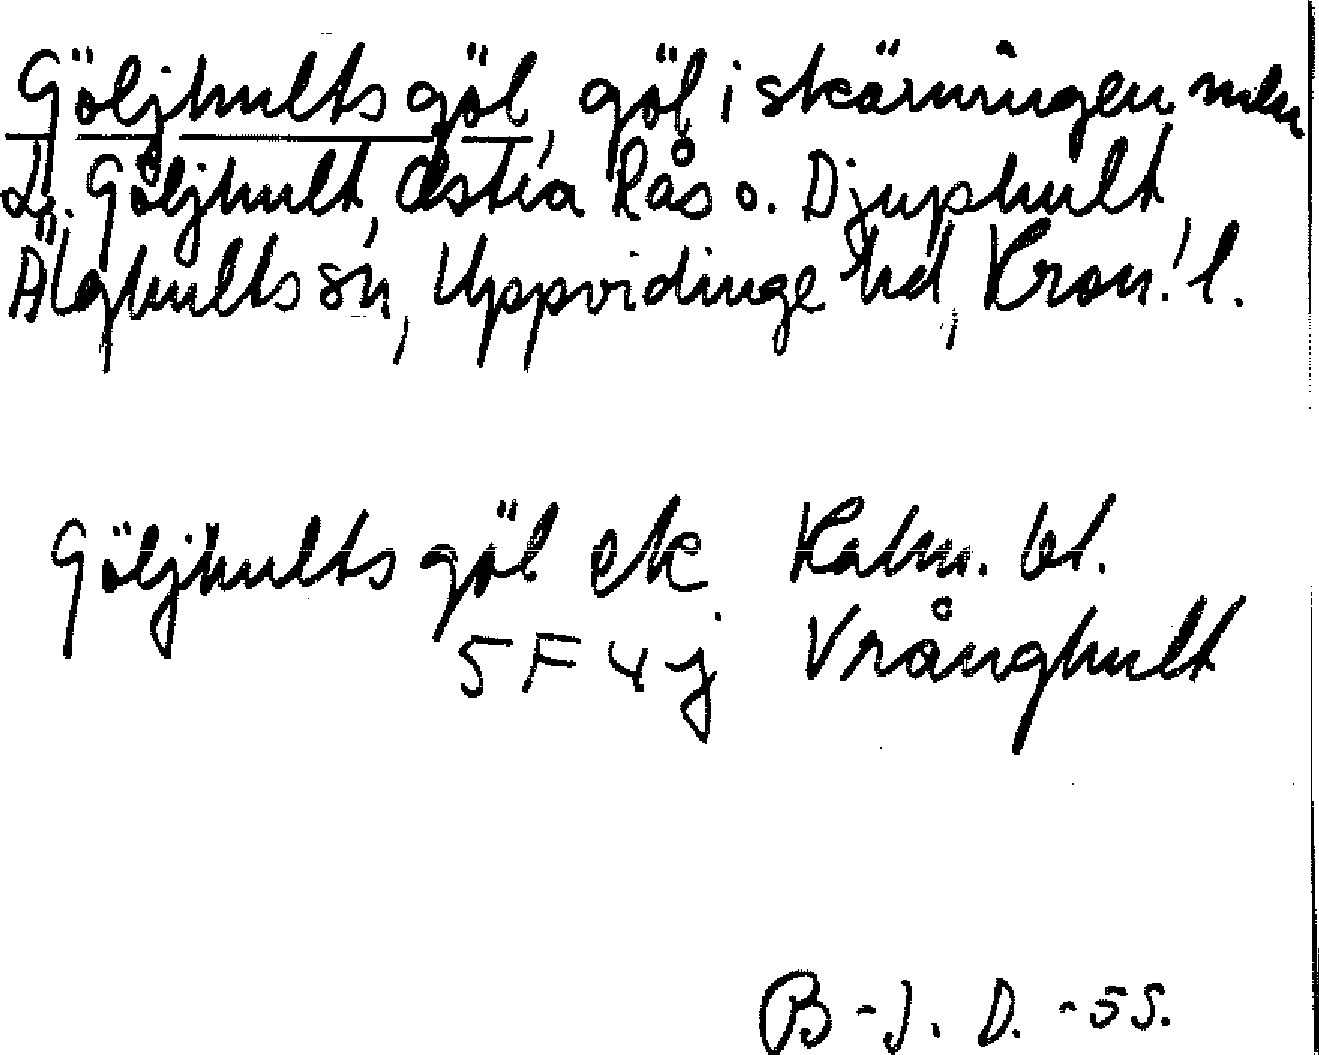 Göljhultsgöl, göl i skärningen mln
L. Göljhult, Östra Rås o. Djuphult,
Älghults sn, Uppvidinge hd, Kron. l.
Göljhultsgöl ek Kalm. bl.
5F4j Vrånghult
B-J. D. -55.